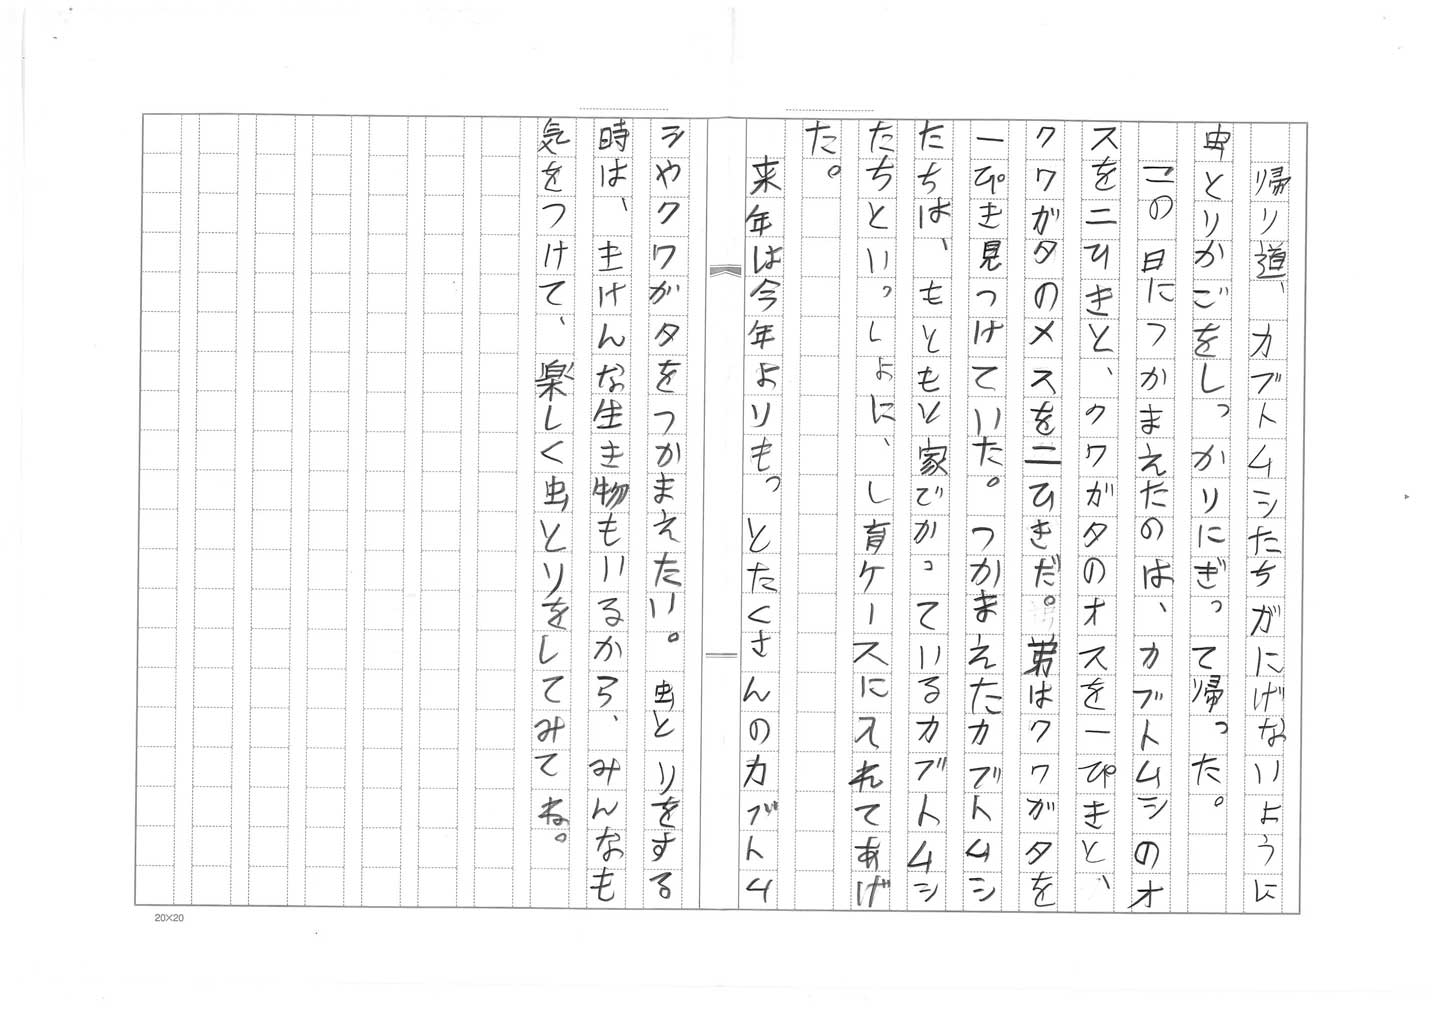 帰り道、カブトムシたちがにげないように
虫とりかごをしっかりにぎって帰った。
この日につかまえたのは、カブトムシのオ
スを二ひきと、クワガタのオスを一ぴきと、
クワガタのメスを二ひきだ。弟はクワガタを
一ぴき見つけていた。つかまえたカブトムシ
たちは、もともと家でかっているカブトムシ
たちといっしょに、し育ケースに入れてあげ
た。
来年は今年よりもっとたくさんのカブトム
シやクワガタをつかまえたい。虫とりをする
時は、きけんな生き物もいるから、みんなも
気をつけて、楽しく虫とりをしてみてね。
20×20